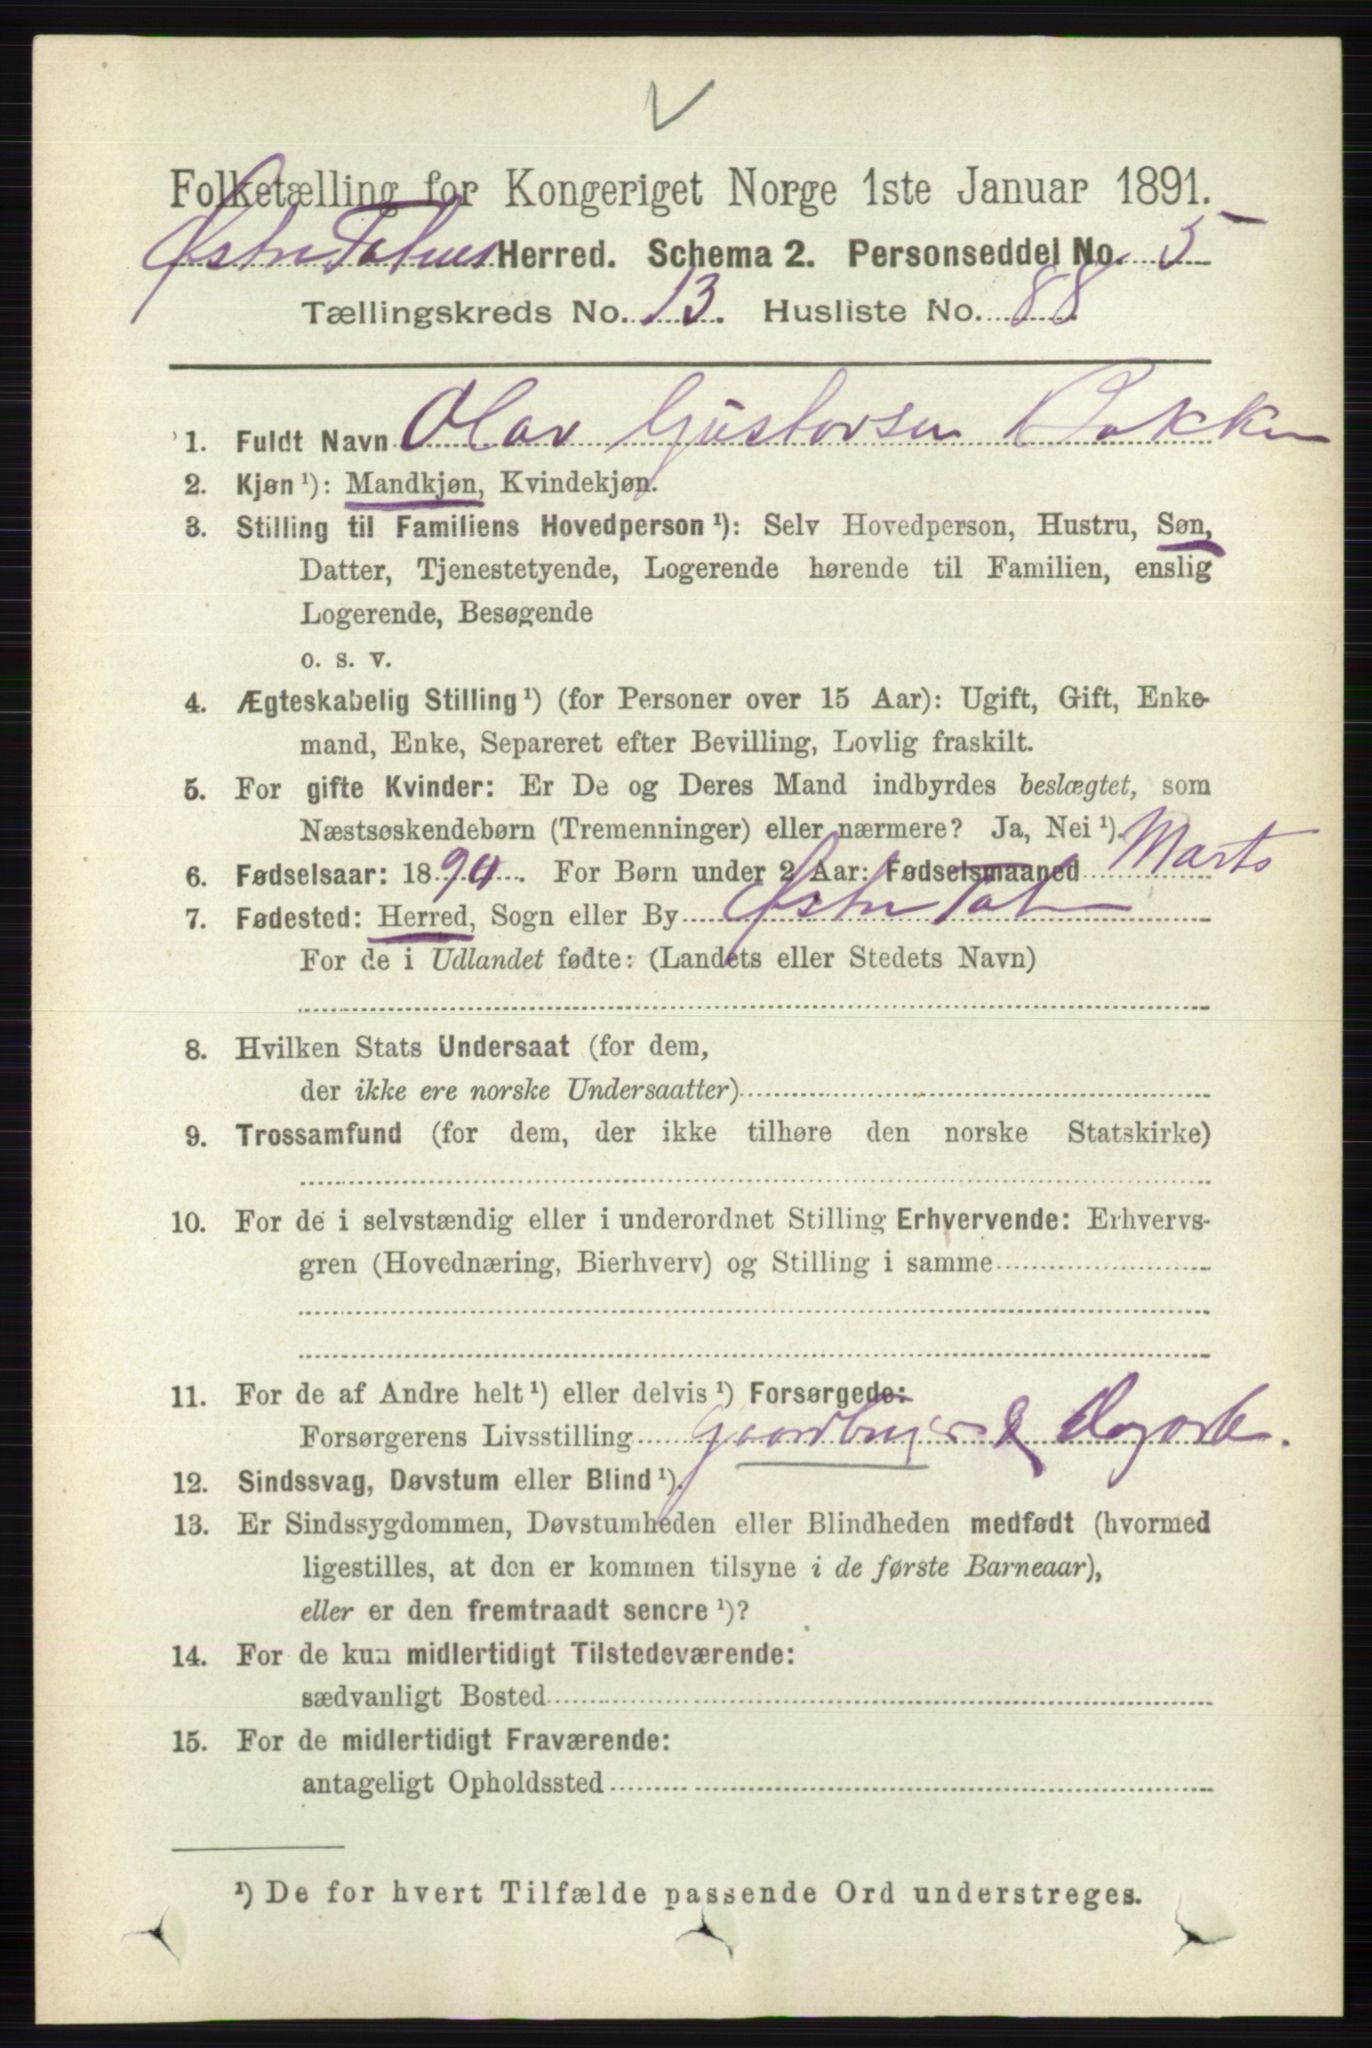 Folketælling for Kongeriget Norge 1ste Januar 1891.
Østre Totens Herred. Schema 2. Personseddel No. 5
Tællingskreds No. 13. Husliste No. 88.
1. Fuldt Navn Olav Gustavsen Bakken
2. Kjøn ¹): Mandkjøn, Kvindekjøn.
3. Stilling til Familiens Hovedperson ¹): Selv Hovedperson, Hustru, Søn,
Datter, Tjenestetyende, Logerende hørende til Familien, enslig
Logerende, Besøgende
o. s. v.
4. Ægteskabelig Stilling ¹) (for Personer over 15 Aar): Ugift, Gift, Enke-
mand, Enke, Separeret efter Bevilling, Lovlig fraskilt.
5. For gifte Kvinder: Er De og Deres Mand indbyrdes beslægtet, som
Næstsøskendebørn (Tremenninger) eller nærmere? Ja, Nei ¹).
6. Fødselsaar: 1890. For Børn under 2 Aar: Fødselsmaaned Marts
7. Fødested: Herred, Sogn eller By Østre Toten
For de i Udlandet fødte: (Landets eller Stedets Navn)
8. Hvilken Stats Undersaat (for dem,
der ikke ere norske Undersaatter)
9. Trossamfund (for dem, der ikke tilhøre den norske Statskirke)
10. For de i selvstændig eller i underordnet Stilling Erhvervende: Erhvervs-
gren (Hovednæring, Bierhverv) og Stilling i samme
11. For de af Andre helt ¹) eller delvis ¹) Forsørgede:
Forsørgerens Livsstilling Gaardbruger & Dagarb.
12. Sindssvag, Døvstum eller Blind ¹).
13. Er Sindssygdommen, Døvstumheden eller Blindheden medfødt (hvormed
ligestilles, at den er kommen tilsyne i de første Barneaar),
eller er den fremtraadt senere ¹)?
14. For de kun midlertidigt Tilstedeværende:
sædvanligt Bosted
15. For de midlertidigt Fraværende:
antageligt Opholdssted
¹) De for hvert Tilfælde passende Ord understreges.